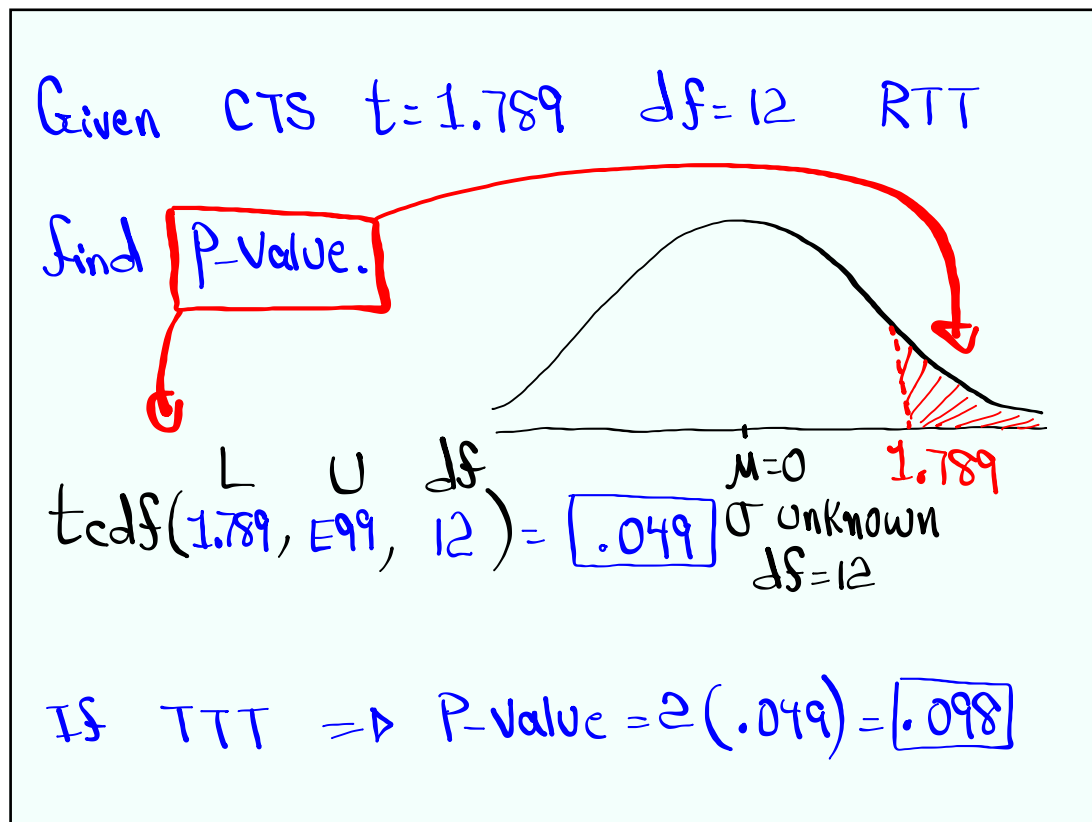 Given CTS t=1.789 df=12 RTT
find P-Value.
L U df
tcdf(1.789, E99, 12)= .049
μ=0 1.789
σ unknown
df=12
If TTT => P-Value =2(.049)=.098